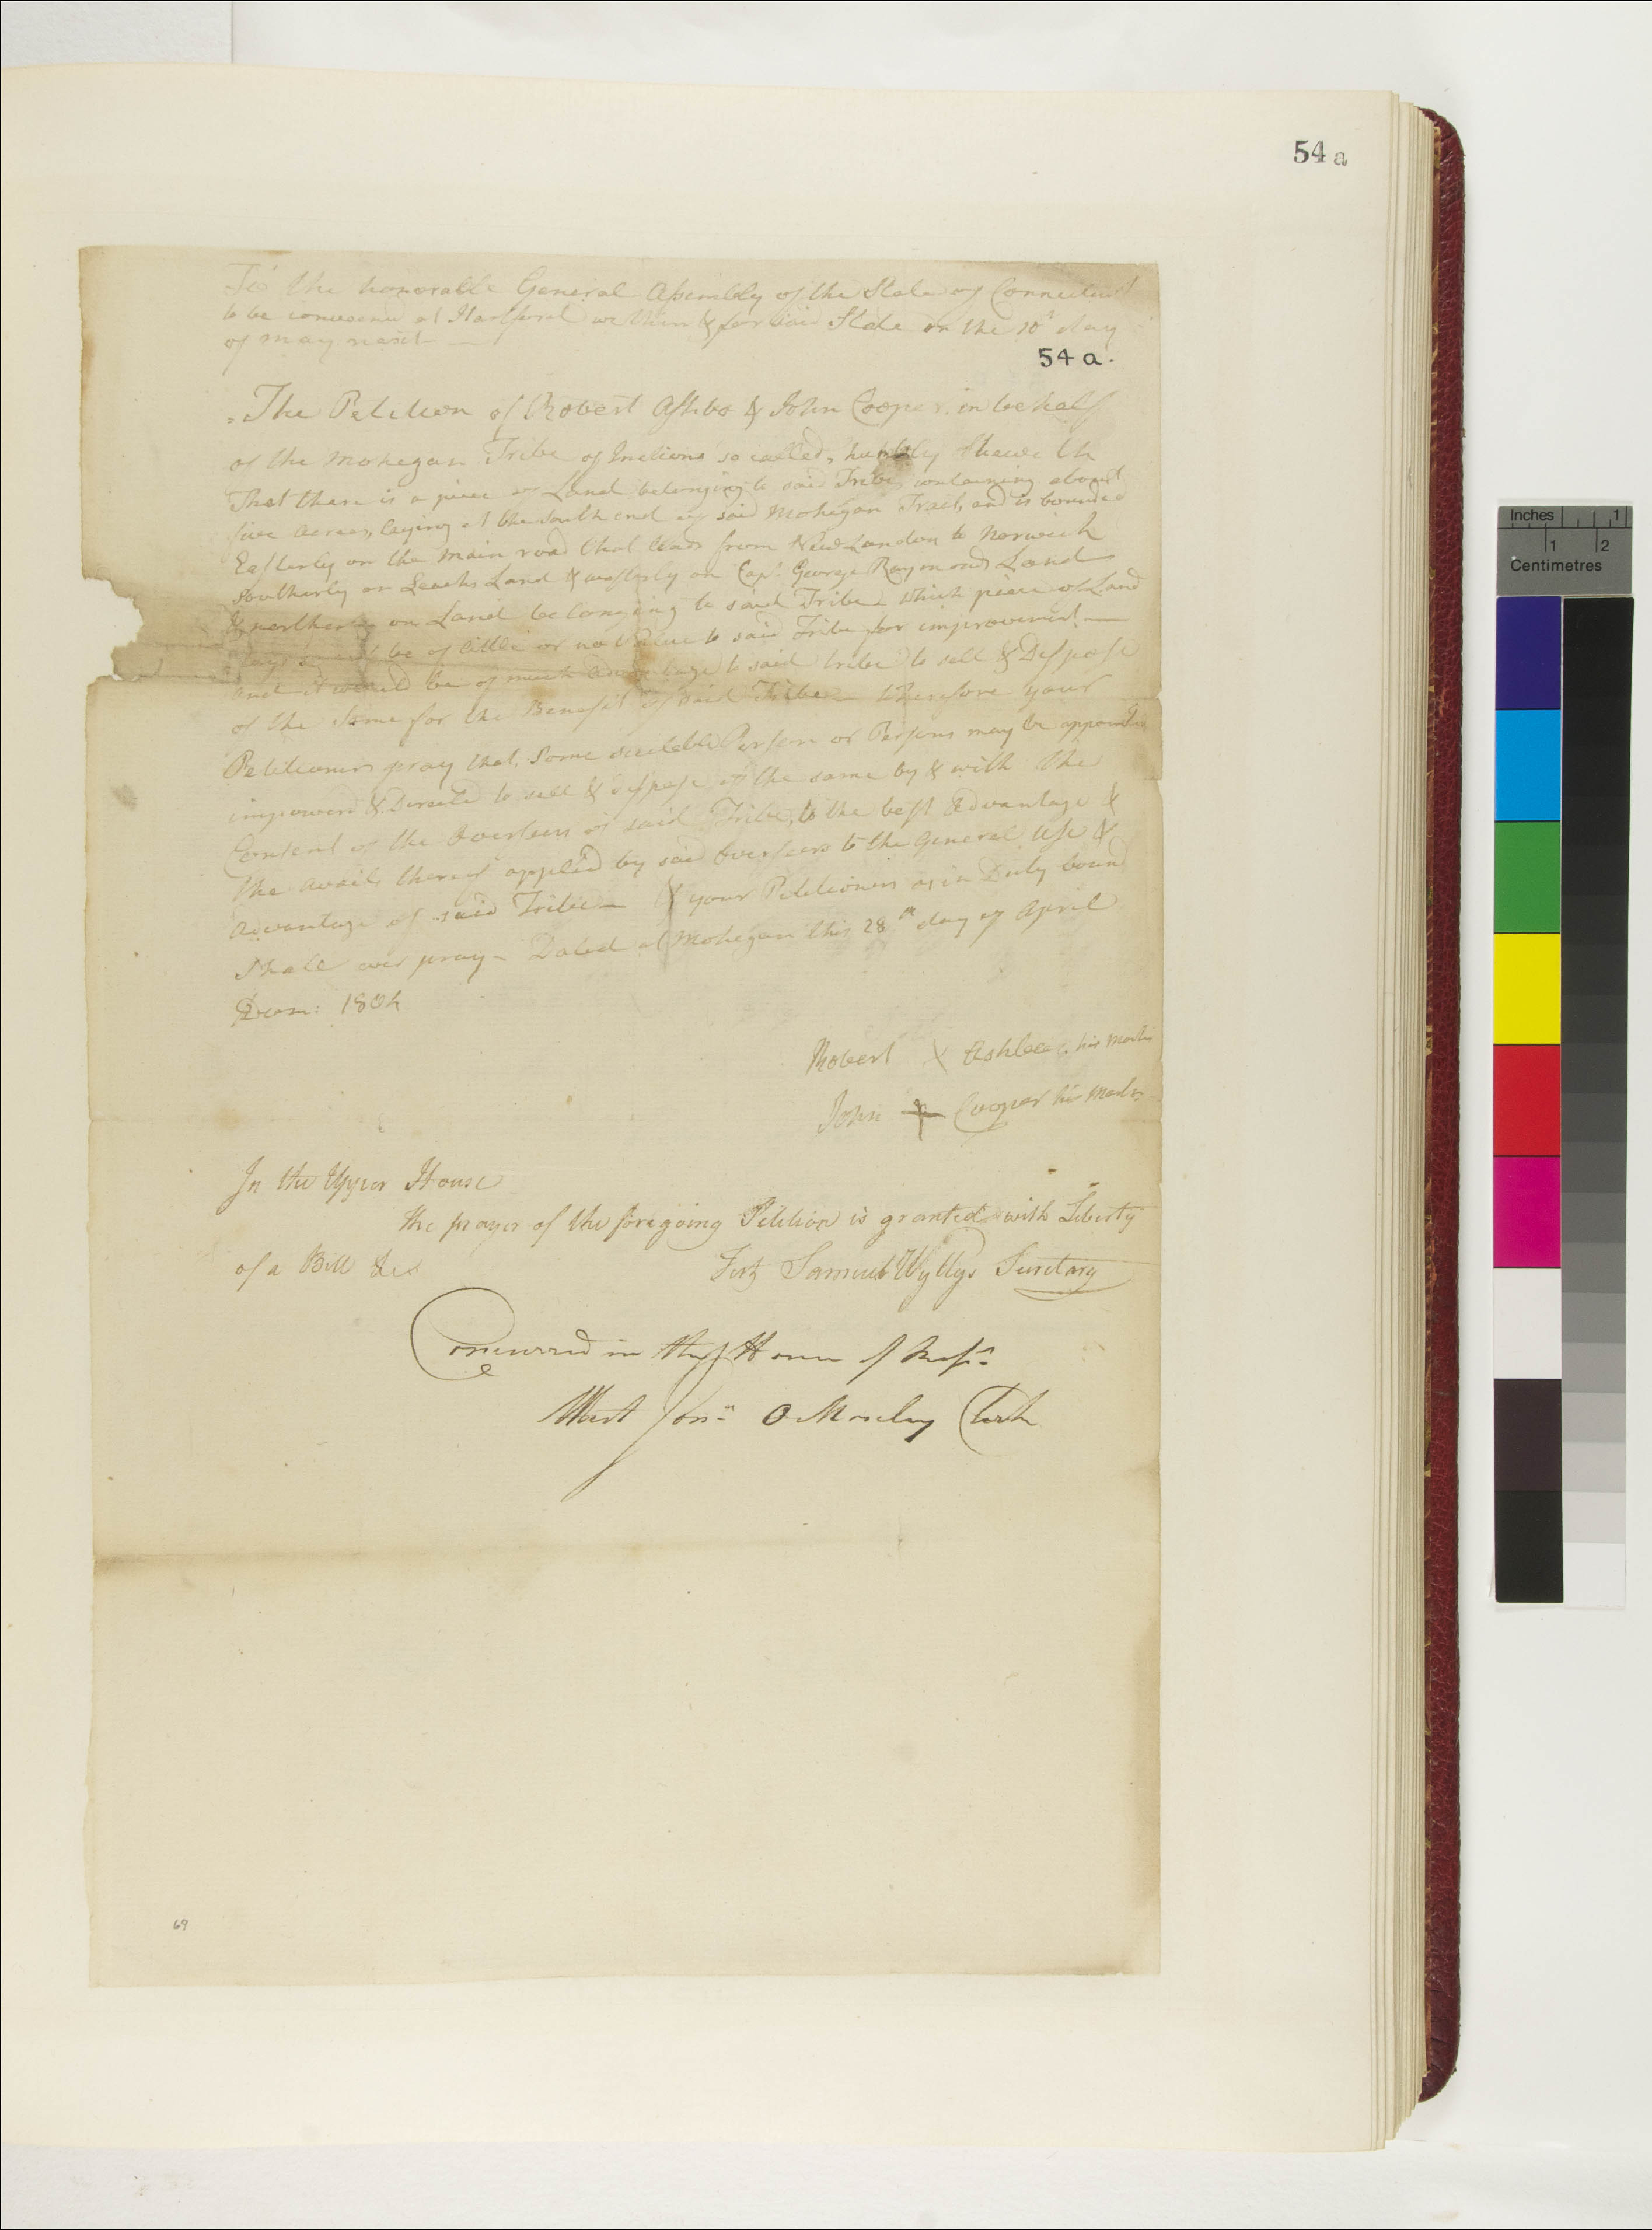 54 a
To the honoralle General Assembly of the State of Connecticut
to be convened at Hartford within & for said State on the 10th day
of may next —
54 a.
=The Petition of Robert Ashbo & John Cooper in behalf
of the Mohegan Tribe of Indians so called, humbly Sheweth
That thare is a piece of Land belonging to said Tribe, containing about
five acres, laying at the South end of said Mohegan Tract, and is bounded
Easterly on the main road that leads from New London to Norwich
Southerly on Leachs Land & westerly on Capt. George Raymonds Land
& northerly on Land belonging to said Tribe which piece of Land
be of little or no Value to said Tribe for improvement —
and it would be of much advantage to said tribe to sell & Dispose
of the Same for the Benefit of said Tribe — Wherefore your
Petitioners pray that, Some suitable Person or Persons may be appointed
impowered & Directed to sell & dispose of the same by & with the
Consent of the Overseers of said Tribe, to the best Advantage &
the avails thereof applied by said Overseers to the General Use &
advantage of said Tribe — & your Petitioners as in Duty bound
Shall ever pray — Dated at Mohegan this 28th day of April
1804
Robert X Ashbo his Mark
John + Cooper his Mark
In the Upper House
The prayer of the foregoing Petition is granted with Liberty
of a Bill &c
Test Samuel Wyllys Secretary
Concurred in the House of Reps.
Attest Jona. O Mosely Clerk
69
Inches 1
1 2
Centimetres